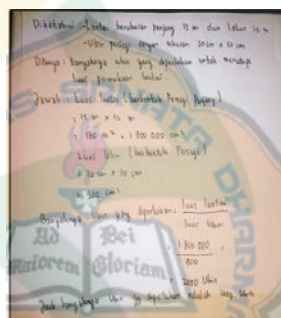 Diketahui : - Lantai berukuran panjang 15 m dan lebar 12 m
- Ubin persegi dengan ukuran 30 cm x 30 cm
Ditanya : Banyaknya ubin yang diperlukan untuk menutupi
luas permukaan lantai.
Jawab : Luas lantai (berbentuk Persegi Panjang)
= 15 m x 12 m
= 180 m² = 1 800 000 cm²
Luas Ubin (berbentuk Persegi)
= 30 cm x 30 cm
= 900 cm²
Banyaknya ubin yang diperlukan = luas lantai
luas ubin
= 1 800 000
900
= 2000 Ubin
Jadi banyaknya Ubin yg diperlukan adalah 2000 Ubin
Ad Dei
Maiorem Gloriam
SANATA DHARMA